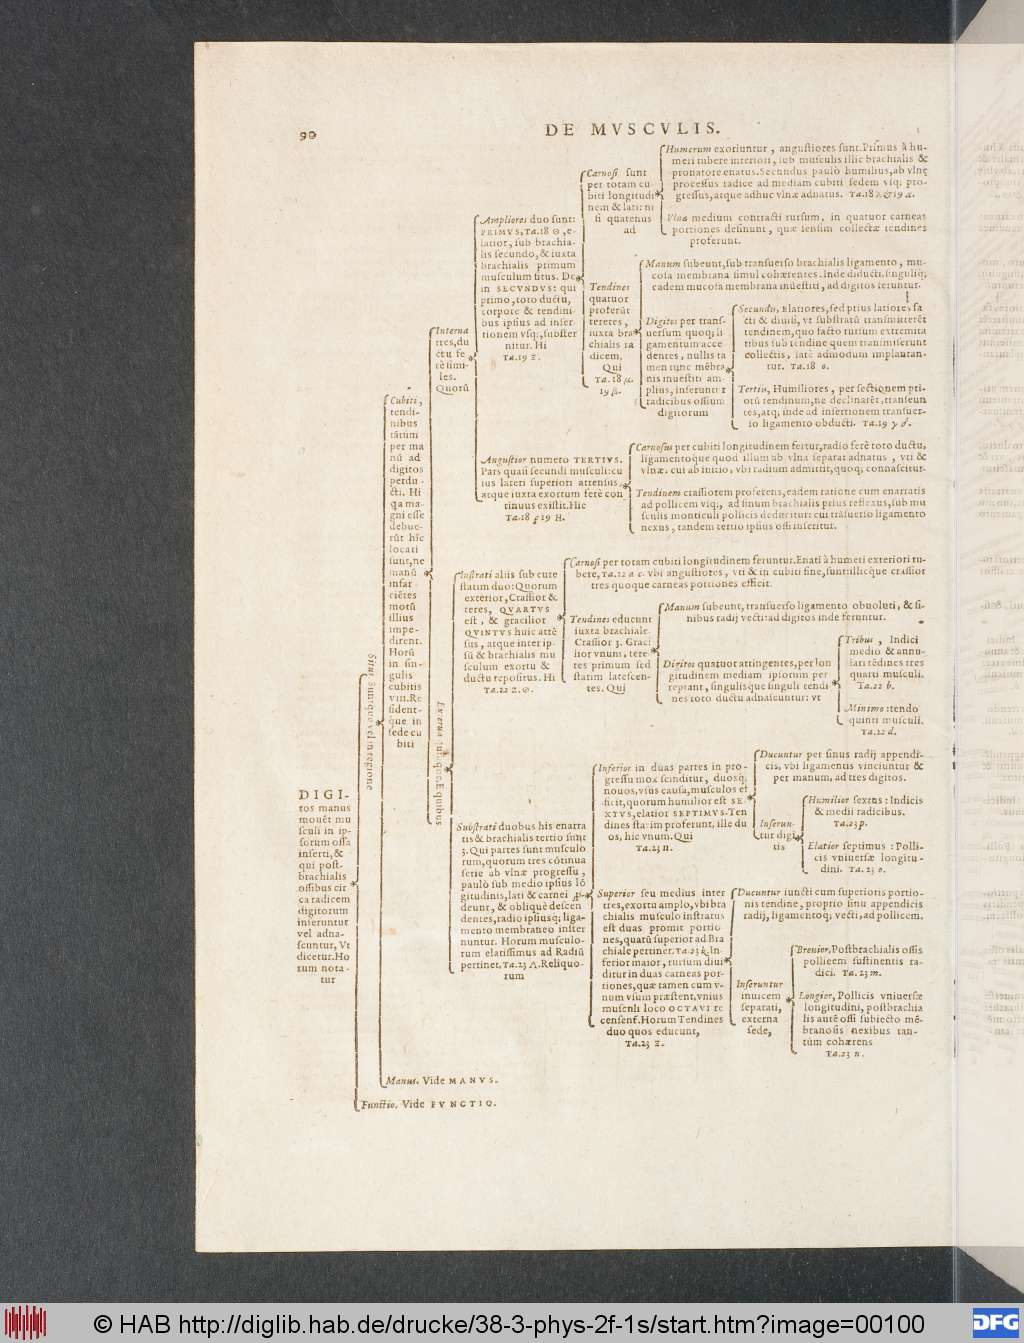 90
DE MVSCVLIS.
DIGI-
tos manus
mouēt mu
sculi in ip-
sorum ossa
inserti, &
qui post-
brachialis
ossibus cir
ca radicem
digitorum
inseruntur
vel adna-
scuntur, Vt
dicetur. Ho
rum nota-
tur
Situs Suntque vel in regione
Cubiti,
tendi-
nibus
tātùm
per ma
nū ad
digitos
perdu-
cti. Hi
qa ma-
gni esse
debue-
rūt hîc
locati
sunt, ne
manū
infar-
ciētes
motū
illius
impe-
dirent.
Horū
in sin-
gulis
cubitis
viii. Re
sident-
que in
sede cu
biti
Interna
tres, du
ctu fe
rè simi-
les.
Quorū
Ampliores duo sunt:
PRIMVS, Ta. 18 Θ, e-
latior, sub brachia-
lis secundo, & iuxta
brachialis primum
musculum situs. De
in SECVNDVS: qui
primo, toto ductu,
corpore & tendini-
bus ipsius ad inser-
tionem vsq;, subster
nitur. Hi
Ta. 19 Ξ.
Carnosi sunt
per totam cu-
biti longitudi
nem & lati: ni
si quatenus
ad
Humerum exoriuntur, angustiores sunt. Primus à hu-
meri tubere interiori, sub musculis illic brachialis &
pronatore enatus. Secundus paulò humilius, ab vlnę
processus radice ad mediam cubiti sedem vsq. pro-
gressus, atque adhuc vlnæ adnatus. Ta. 18 λ & 19 α.
Vlnæ medium contracti rursum, in quatuor carneas
portiones desinunt, quæ sensim collectæ tendines
proferunt.
Tendines
quatuor
proferūt
teretes,
iuxta bra
chialis ra
dicem.
Qui
Ta. 18 μ.
19 β.
Manum subeunt, sub transuerso brachialis ligamento, mu-
cosa membrana simul cohærentes. Inde diducti, singuliq;
eadem mucosa membrana inuestiti, ad digitos feruntur.
Digitos per trans-
uersum quoq; li
gamentum acce
dentes, nullis ta
men tunc mēbra
nis inuestiti am-
plius, inserunt r
radicibus ossium
digitorum
Secundis, Elatiores, sed prius latiores fa
cti & diuisi, vt substratū transmitterēt
tendinem, quo facto rursum extremita
tibus sub tendine quem transmiserunt
collectis, latè admodum implantan-
tur. Ta. 18 ο.
Tertiis, Humiliores, per sectionem pri-
orū tendinum, ne declinarēt, transeun
tes, atq; inde ad insertionem transuer-
so ligamento obducti. Ta. 19 γ δ.
Angustior numero TERTIVS.
Pars quasi secundi musculi: cu
ius lateri superiori attensus,
atque iuxta exortum ferè con
tinuus existit. Hic
Ta. 18 ε 19 H.
Carnosus per cubiti longitudinem fertur, radio ferè toto ductu,
ligamentoque quod illum ab vlna separat adnatus, vti &
vlnæ. cui ab initio, vbi radium admittit, quoq; connascitur.
Tendinem crassiorem proferens, eadem ratione cum enarratis
ad pollicem viq;, ad sinum brachialis prius reflexus, sub mu
sculis monticuli pollicis deducitur: cui trāsuerso ligamento
nexus, tandem tertio ipsius ossi inseritur.
Externa suntque. E quibus
Instrati aliis sub cute
statim duo: Quorum
exterior, Crassior &
teres, QVARTVS
est, & gracilior
QVINTVS huic attē
sus, atque inter ip-
sū & brachialis mu
sculum exortu &
ductu repositus. Hi
Ta. 22 Ξ. Θ.
Carnosi per totam cubiti longitudinem feruntur. Enati à humeri exteriori tu-
bere, Ta. 22 a c. vbi angustiores, vti & in cubiti fine, sunt: illicque crassior
tres quoque carneas portiones efficit.
Tendines educunt
iuxta brachiale.
Crassior 3. Graci
lior vnum, tere-
tes primum sed
statim latescen-
tes. Qui
Manum subeunt, transuerso ligamento obuoluti, & si-
nibus radij vecti: ad digitos inde feruntur.
Digitos quatuor attingentes, per lon
gitudinem mediam ipsorum per
reptant, singulisque singuli tendi
nes toto ductu adnascuntur: vt
Tribus, Indici
medio & annu-
lari tēdines tres
quarti musculi.
Ta. 22 b.
Minimo: tendo
quinti musculi.
Ta. 22 d.
Substrati duobus his enarra
tis & brachialis tertio sunt
3. Qui partes sunt musculo
rum, quorum tres cōtinua
serie ab vlnæ progressu,
paulò sub medio ipsius lō
gitudinis, lati & carnei p-
deunt, & obliquè descen
dentes, radio ipsiusq; liga-
mento membraneo inster
nuntur. Horum musculo-
rum elatissimus ad Radiū
pertinet, Ta. 23 Λ. Reliquo-
rum
Inferior in duas partes in pro-
gressu mox scinditur, duosq;
nouos, vsus causa, musculos ef
ficit, quorum humilior est SE-
XTVS, elatior SEPTIMVS. Ten
dines statim proferunt, ille du
os, hic vnum. Qui
Ta. 23 n.
Ducuntur per sinus radij appendi-
cis, vbi ligamentis vinciuntur &
per manum, ad tres digitos.
Inserun-
tur digi
tis
Humilior sextus: Indicis
& medii radicibus.
Ta. 23 p.
Elatior septimus: Polli-
cis vniuersæ longitu-
dini. Ta. 23 o.
Superior seu medius inter
tres, exortu amplo, vbi bra
chialis musculo instratus
est duas promit portio
nes, quarū superior ad Bra
chiale pertinet. Ta. 23 k. In-
ferior maior, rursum diui
ditur in duas carneas por-
tiones, quæ tamen cum v-
num vsum præstent, vnius
musculi loco OCTAVI re
censent. Horum Tendines
duo quos educunt,
Ta. 23 Ξ.
Ducuntur iuncti cum superioris portio-
nis tendine, proprio sinu appendicis
radij, ligamentoq; vecti, ad pollicem.
Inseruntur
inuicem
separati,
externa
sede,
Breuior, Postbrachialis ossis
pollicem sustinentis ra-
dici. Ta. 23 m.
Longior, Pollicis vniuersæ
longitudini, postbrachia
lis autē ossi subiecto mē-
branosis nexibus tan-
tùm cohærens
Ta. 23 n.
Manus. Vide MANVS.
Functio. Vide FVNCTIO.
© HAB http://diglib.hab.de/drucke/38-3-phys-2f-1s/start.htm?image=00100
DFG